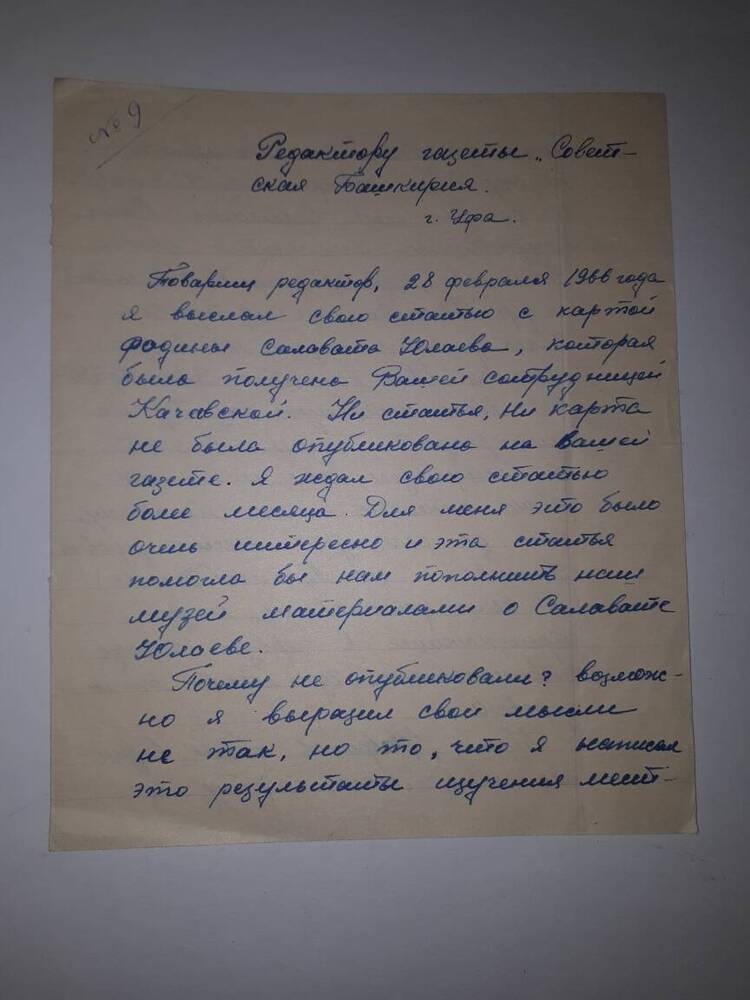 № 9
Редактору газеты „Совет-
ская Башкирия.
г. Уфа.
Товарищ редактор, 28 февраля 1966 года
я выслал свою статью с картой
родины Салавата Юлаева, которая
была получена Вашей сотрудницей
Качавской. Ни статья, ни карта
не была опубликована на Вашей
газете. Я ждал свою статью
более месяца. Для меня это было
очень интересно и эта статья
помогла бы нам пополнить наш
музей материалами о Салавате
Юлаеве.
Почему не опубликовали? Возмож-
но я выразил свои мысли
не так, но то, что я написал
это результаты изучения мест-